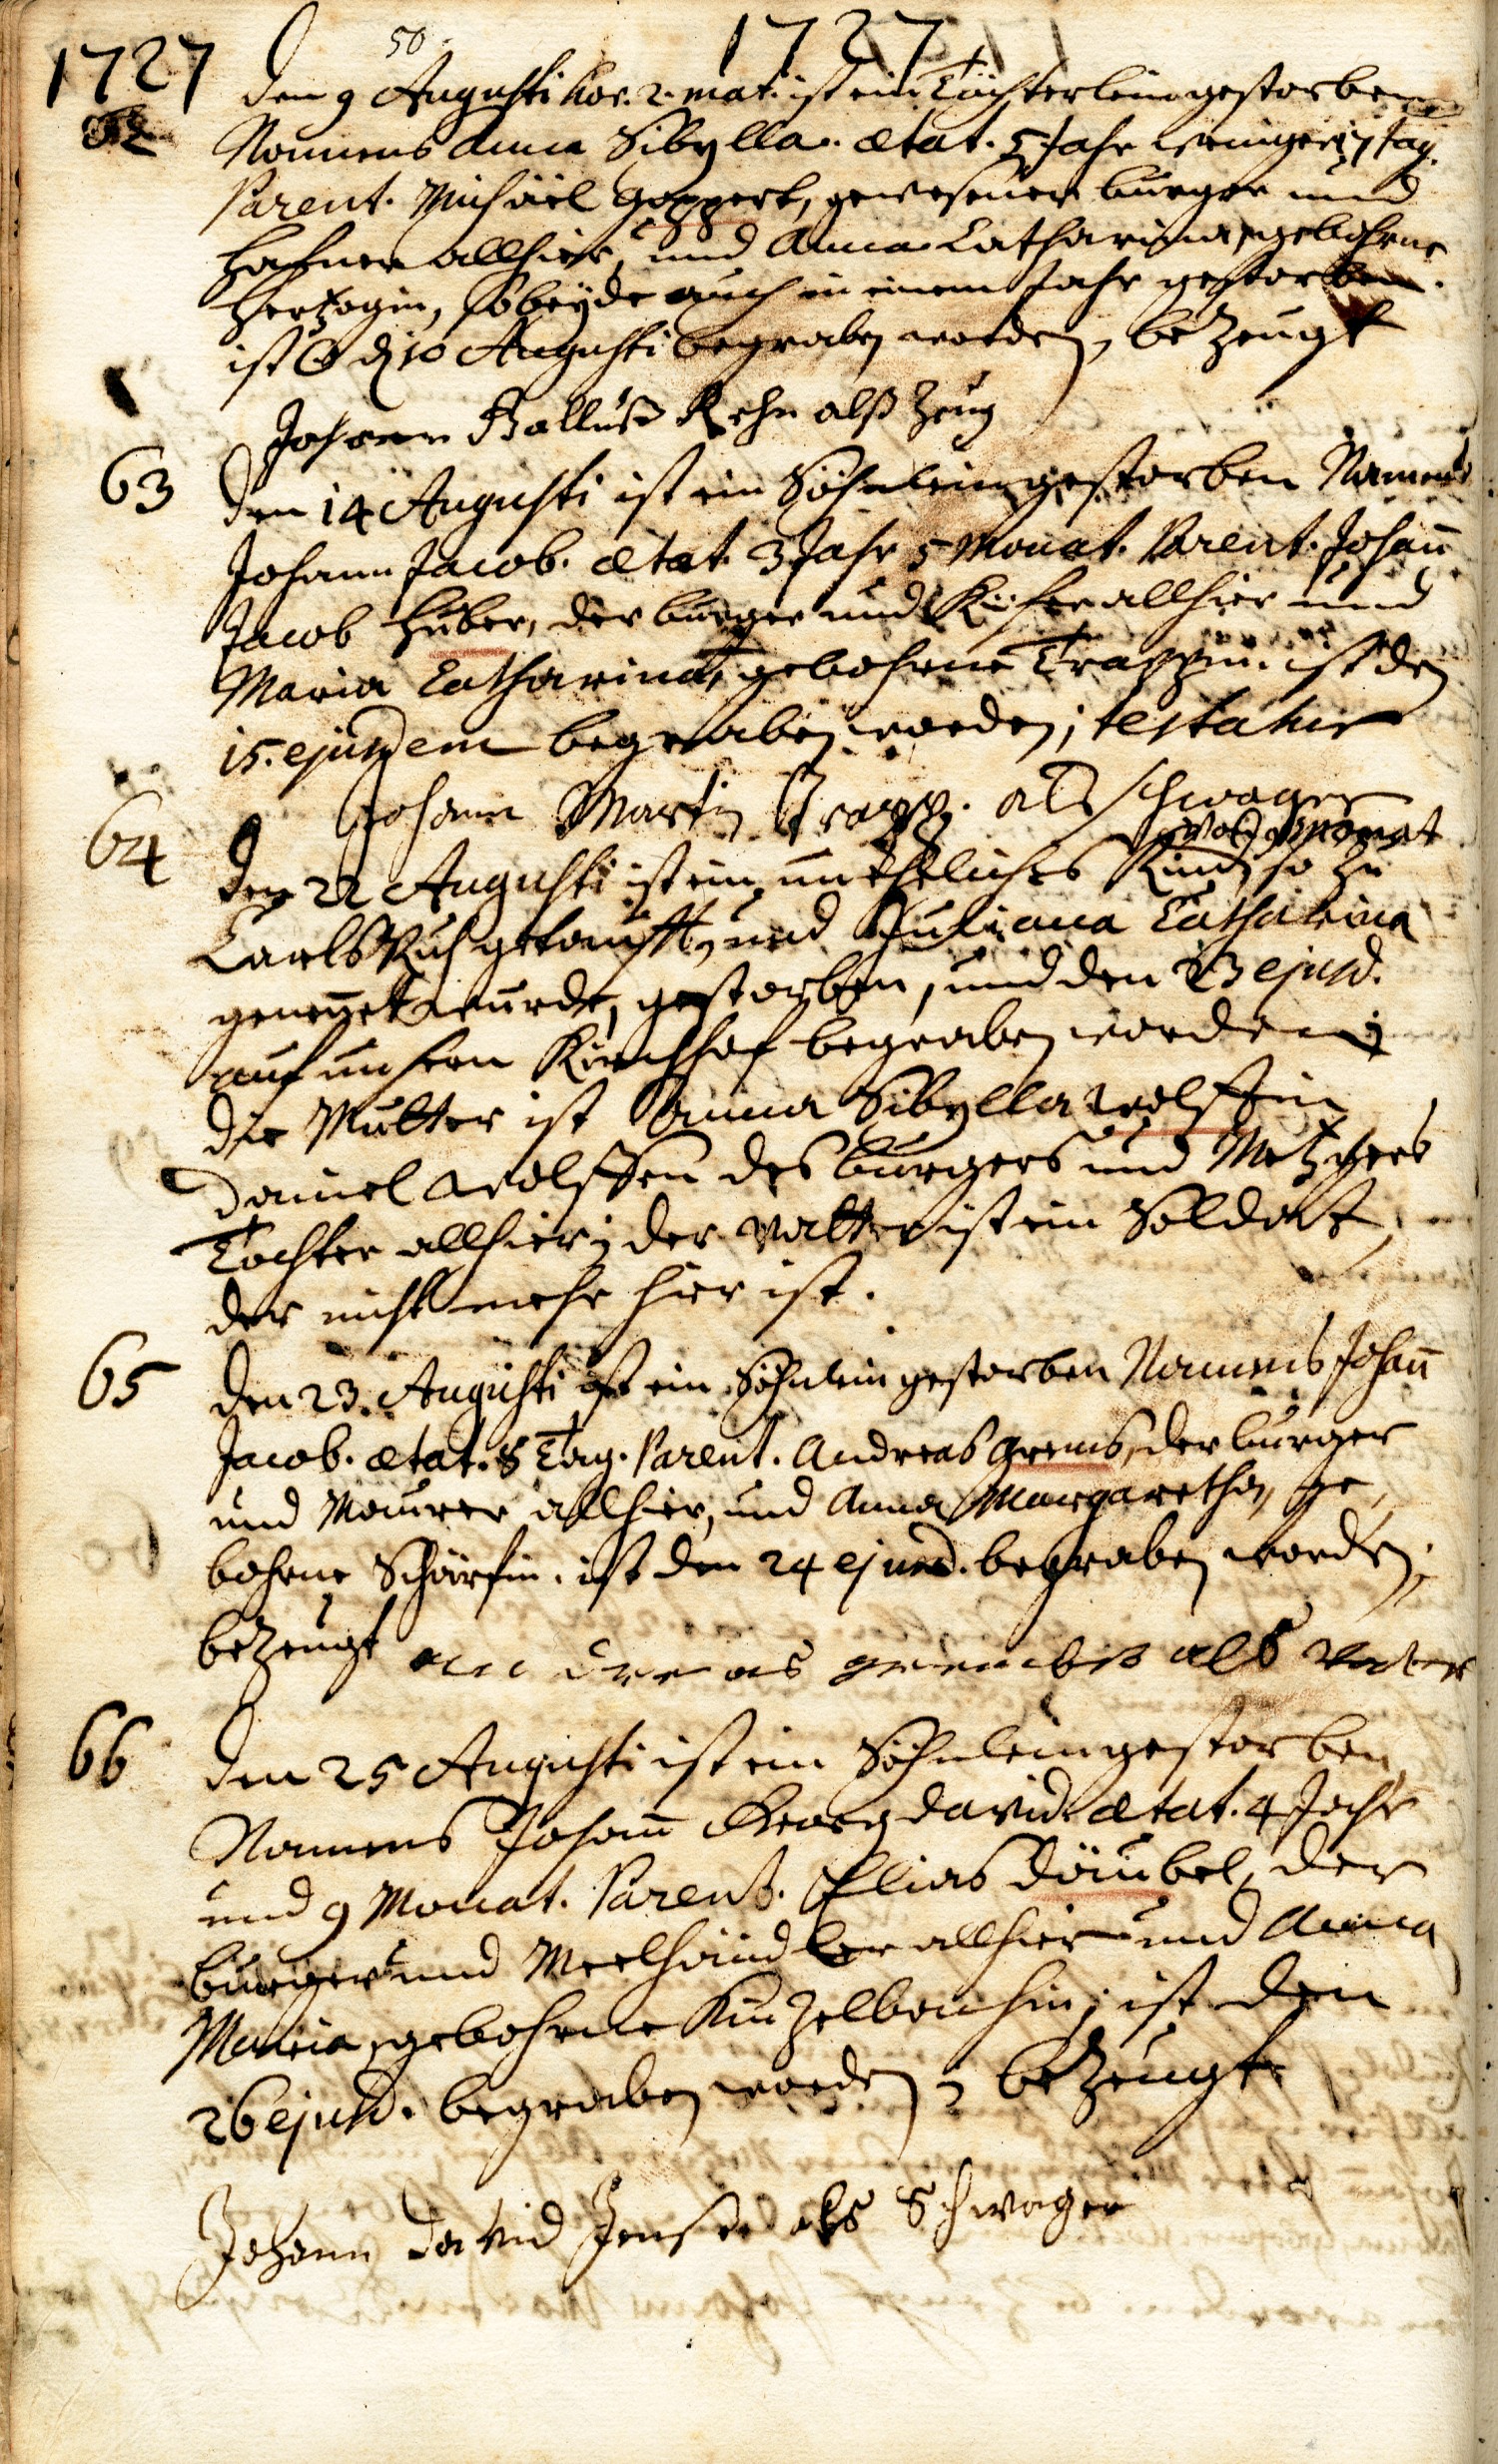 50
1727 1727
Den 9 Augusti hor. 2. mat. ist ein Töchterlein gestorben
62
Namens Anna Sibylla. ætat. 5 Jahr weniger 17 Tag.
Parent. Michäel Goppert, gewesener burger und
Hafner allhier, und Anna Catharina, gebohrne
Hertzogin, so beyde auch in einem Jahr gestorben.
ist d 10 Augusti begraben worden, bezeugt
Johann Kehn alß Zeug
63
Den 14 Augusti ist ein Söhnlein gestorben Namens
Johann Jacob. ætat. 3 Jahr 5 Monat. Parent. Johañ
Jacob Huber, der burger und Küfer allhier und
Maria Catharina, gebohrne Trappin. ist den
15. ejusdem begraben worden; testatur
Johann Martin Trapp. als schwager
64
von 9 Monat
Den 22 Augusti ist ein unehliches Kind, so zu
Carls Ruh getaufft, und Juliana Catharina
geneñet wurde, gestorben, und den 23 ejusd.
auf unsern Kirchhof begraben worden;
die Mutter ist Anna Sibylla Wolffin
Daniel Wolffen des burgers und Metzgers
Tochter allhier; der Vatter ist ein Soldat,
der nicht mehr hier ist.
65
Den 23. Augusti ist ein Söhnlein gestorben Namens Johañ
Jacob. ætat. 8 Tag. Parent. Andreas Grems, der burger
und Maurer allhier, und Anna Margaretha, ge,
bohrne Schärfin. ist den 24 ejusd. begraben worden;
bezeugt andreas grembs als vater
66
Den 25 Augusti ist ein Söhnlein gestorben
Namens Johañ Georg David. ætat. 4 Jahr
und 9 Monat. Parent. Elias Däubel, der
burger und Meelhändler allhier und Anna
Maria, gebohrne Kinzelbachin; ist den
26 ejusd. begraben worden; bezeugt
Johann David als Schwager